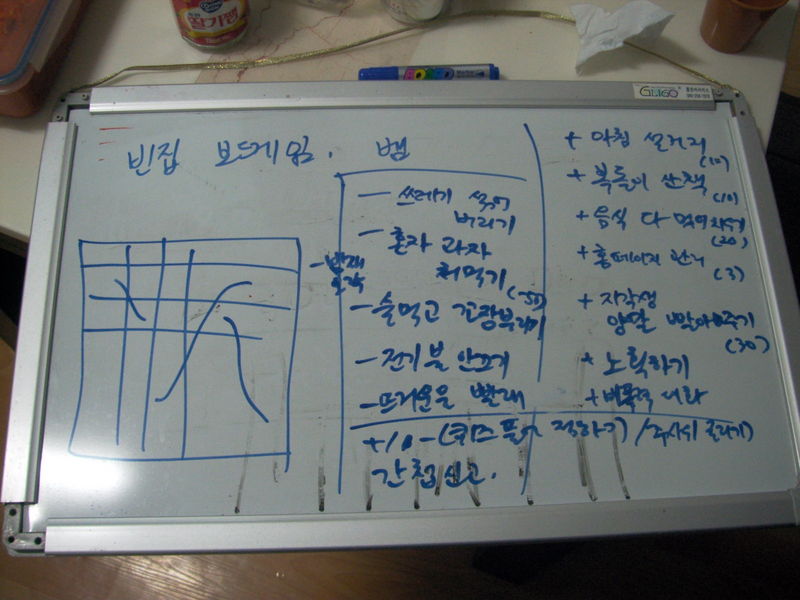 딸기잼
GLTGO
빈집 보드게임. 뱀
- 쓰레기 섞어
버리기
- 혼자 과자
처먹기 (-50)
- 빨래
- 술먹고 깽장부리기
- 전기불 안끄기
- 뜨거운물 빨래
+ 아침 설거지 (10)
+ 복돌이 산책 (10)
+ 음식 다 먹어치우기 (20)
+ 홈페이지 관리 (3)
+ 자각생
양말 빨아주기 (30)
+ 노획하기
+ 비폭력 대화
+/0 - (퀴즈 풀고 정하기) / 주사위 굴리기)
간첩신고.